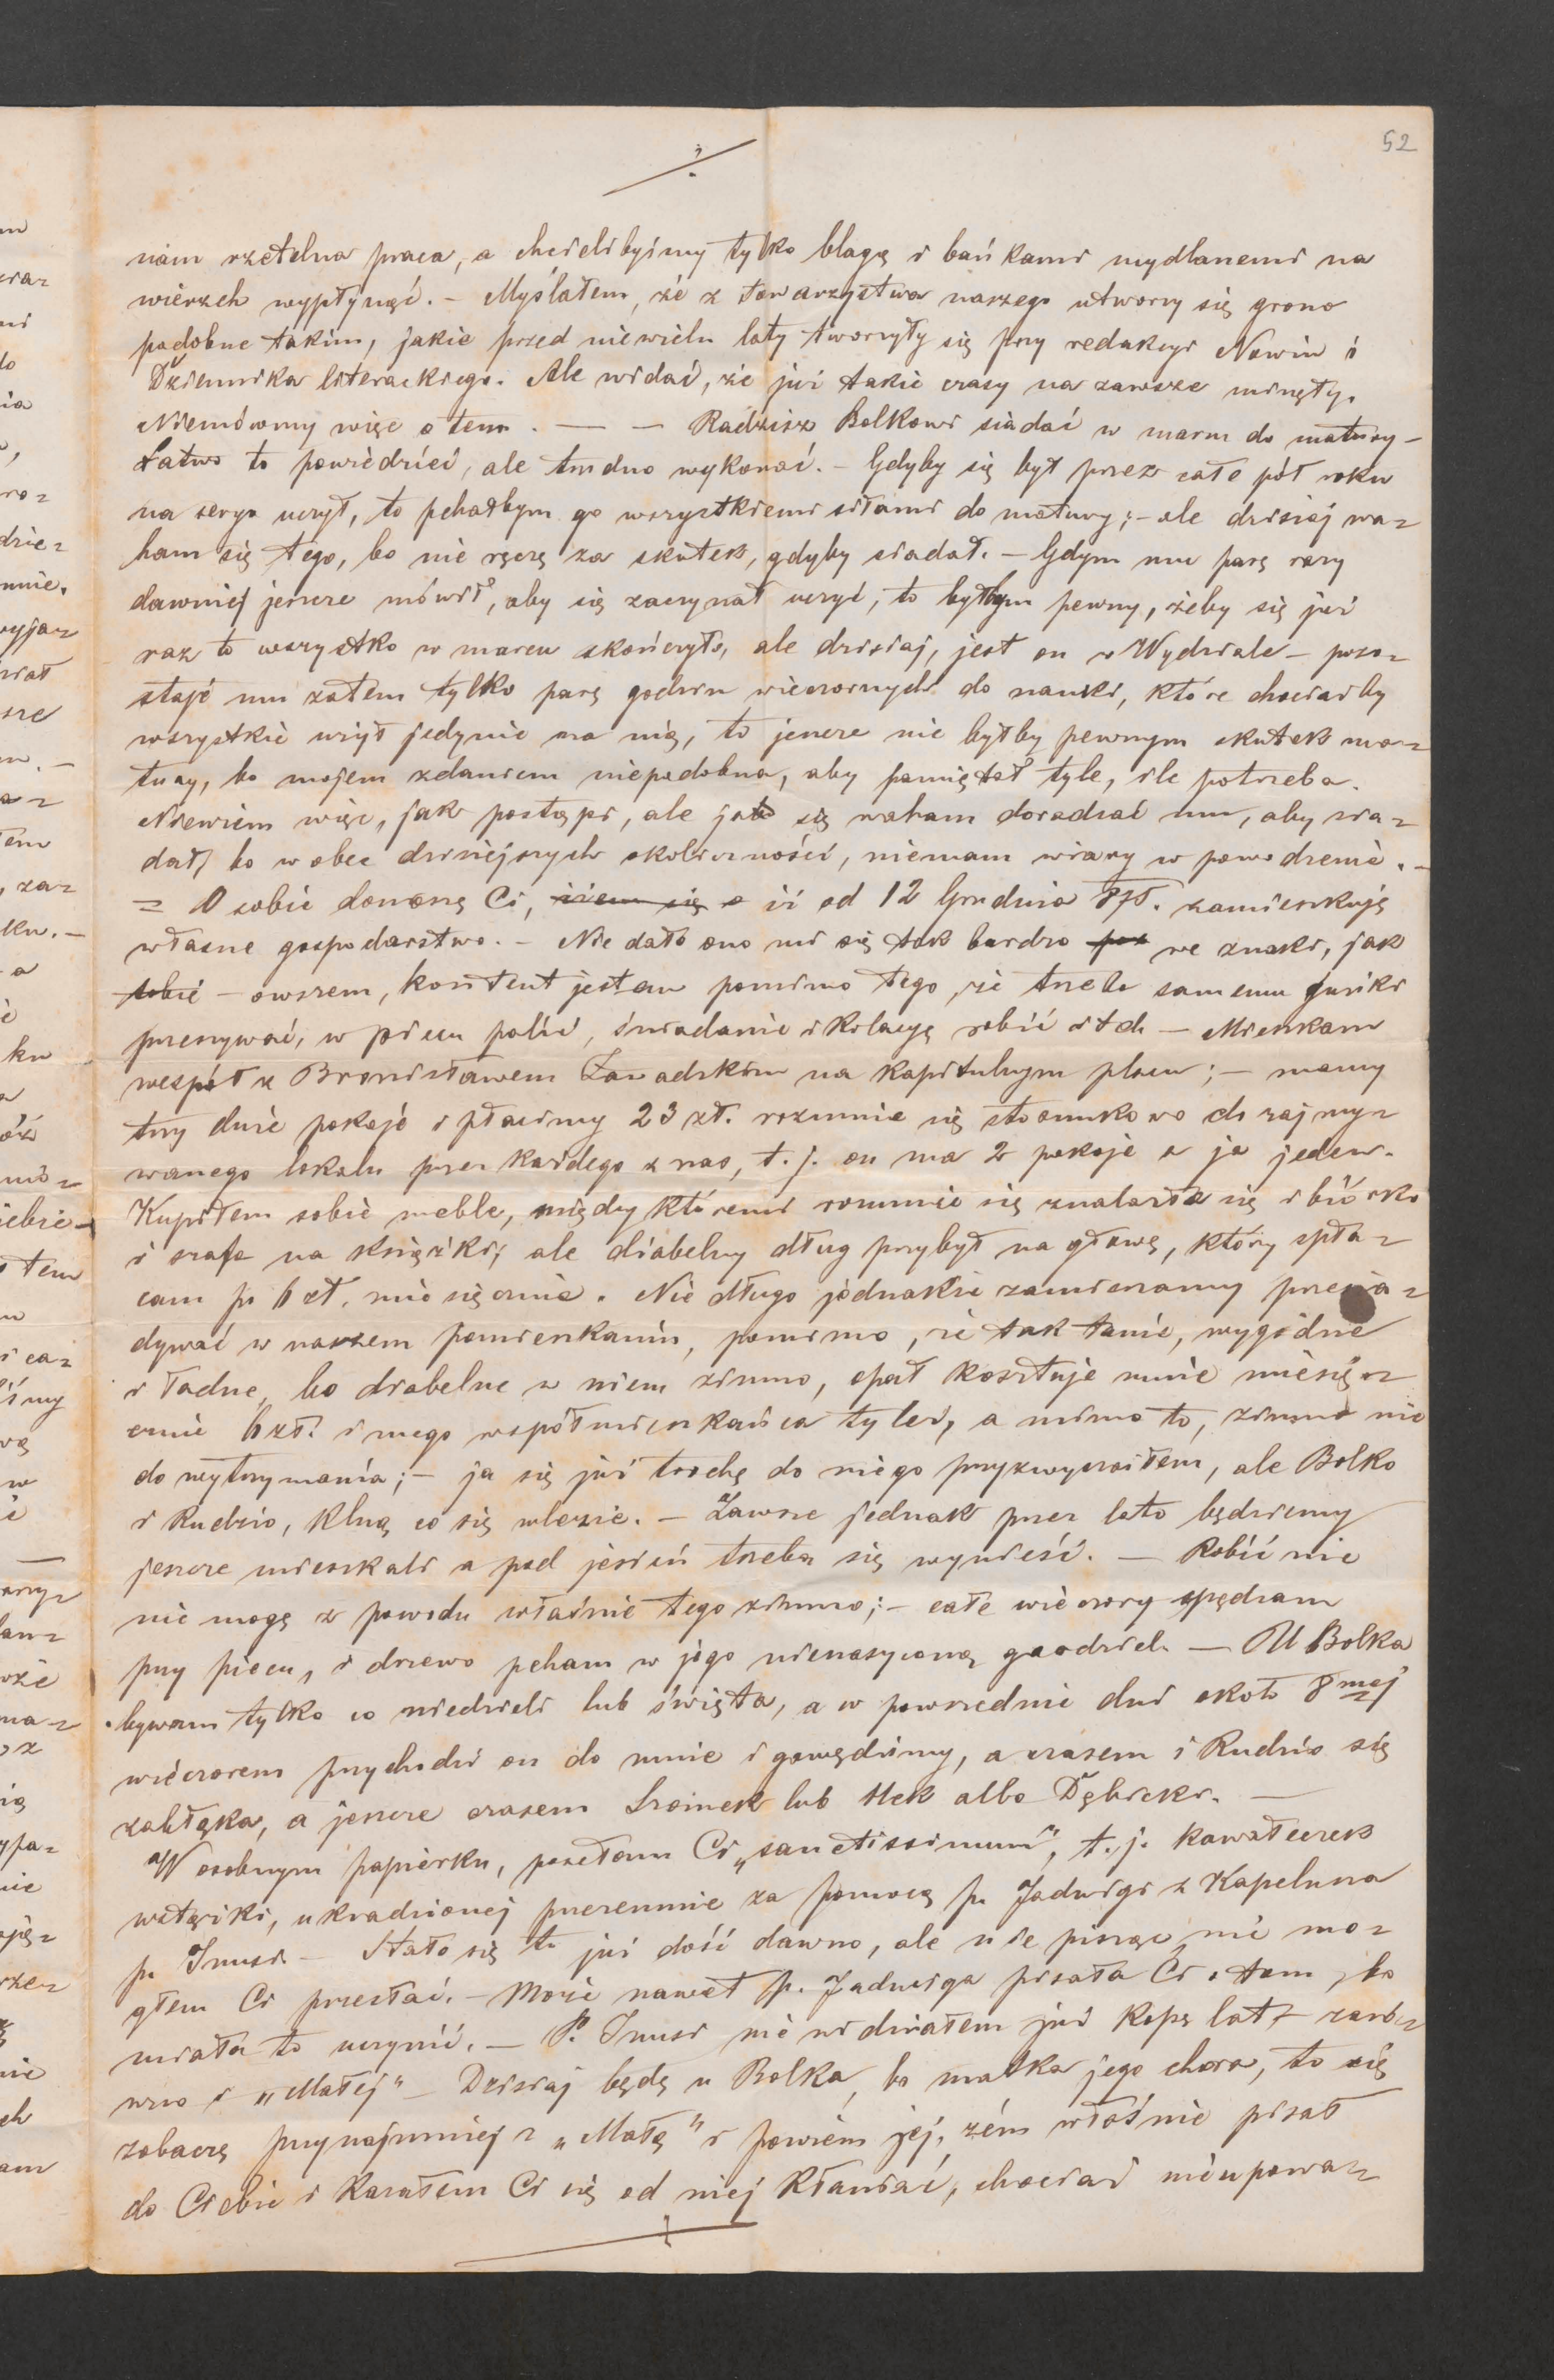 52
nam rzetelna praca, a chcielibyśmy tylko blagą i bańkami mydlanemi na
wierzch wypłynąć. – Myślałem, że z towarzystwa naszego utworzy się grono
podobne takim, jakie przed niewielu laty tworzyły się przy redakcyi Nowin i
Dziennika literackiego. Ale widać, że już takie czasy na zawsze minęły.
Niemówmy więc o tem. — — Radzisz Bolkowi siadać w marcu do matury –
Łatwo to powiedzieć, ale trudno wykonać. – Gdyby się był przez całe pół roku
na seryo uczył, to pchałbym go wszystkiemi siłami do matury; – ale dzisiaj wa=
ham się tego, bo nie ręczę za skutek, gdyby siadał. – Gdym mu parę razy
dawniej jeszcze mówił, aby się zaczynał uczyć, to byłbym pewny, żeby się już
raz to wszystko w marcu skończyło, ale dzisiaj, jest on w Wydziale – pozo=
staje mu zatem tylko parę godzin wieczornych do nauki, które chociażby
wszystkie użył jedynie na nią, to jeszcze nie byłby pewnym skutek ma=
tury, bo mojem zdaniem niepodobna, aby pamiętał tyle, ile potrzeba.
Niewiem więc, jak postąpi, ale ja się waham doradzać mu, aby sia=
dał, bo wobec dzisiejszych okoliczności, niemam wiary w powodzenie. –
= O sobie donoszę Ci, iżem się iż od 12 Grudnia zamieszkuję
własne gospodarstwo. – Nie dało ono mi się tak bardzo we znaki, jak
tobie – owszem, kontent jestem pomimo tego, że trzeba samemu guziki
przyszywać, w piecu palić, śniadanie i kolacyę robić itd. – Mieszkam
wespół z Bronisławem Zawadzkim na kapitulnym placu; – mamy
trzy duże pokoje i płacimy 23 zł. rozumie się stosunkowo do zajmy=
wanego lokalu przez każdego z nas, t. j. on ma 2 pokoje a ja jeden.
Kupiłem sobie meble, między któremi rozumie się znalazła się i biórko
i szafa na książki, ale diabelny dług przybył na głowę, który spła=
cam po 6 zł. miesięcznie. Nie długo jednakże zamierzamy przesia=
dywać w naszem pomieszkaniu, pomimo, że tak tanie, wygodne
i ładne, bo diabelne w niem zimno, opał kosztuje mnie miesię=
cznie 6 zł. i mego współmieszkańca tyleż, a mimo to, zimno nie
do wytrzymania; – ja się już trochę do niego przyzwyczaiłem, ale Bolko
i Rudzio, klną co się wlezie. – Zawsze jednak przez lato będziemy
jeszcze mieszkali a pod jesień trzeba się wynieść. — Robić nic
nie mogę z powodu właśnie tego zimna; – całe wieczory spędzam
przy piecu, i drzewo pcham w jego nienasyconą gardziel. — U Bolka
bywam tylko co niedzieli lub święta, a w powszednie dni około 8mej
wieczorem przychodzi on do mnie i gawędzimy, a czasem i Rudzio się
zabłąka, a jeszcze czasem Sroinek lub Stek albo Dębicki. —
W osobnym papierku, posełam Ci „sanctissimum“, t. j. kawałeczek
wstążki, ukradzionej przezemnie za pomocą p. Jadwigi z kapelusza
p. Inusi – Stało się to już dość dawno, ale nie pisząc nie mo=
głem Ci przesłać. – Może nawet p. Jadwiga pisała Ci o tem, bo
miała to uczynić. – P. Inusi nie widziałem już kopę lat, – zaró=
wno i „Małej“ – Dzisiaj będę u Bolka, bo matka jego chora, to się
zobaczę przynajmniej z „Małą“ i powiem jej, żem właśnie pisał
do Ciebie i kazałem Ci się od niej kłaniać, chociaż nieupowa=